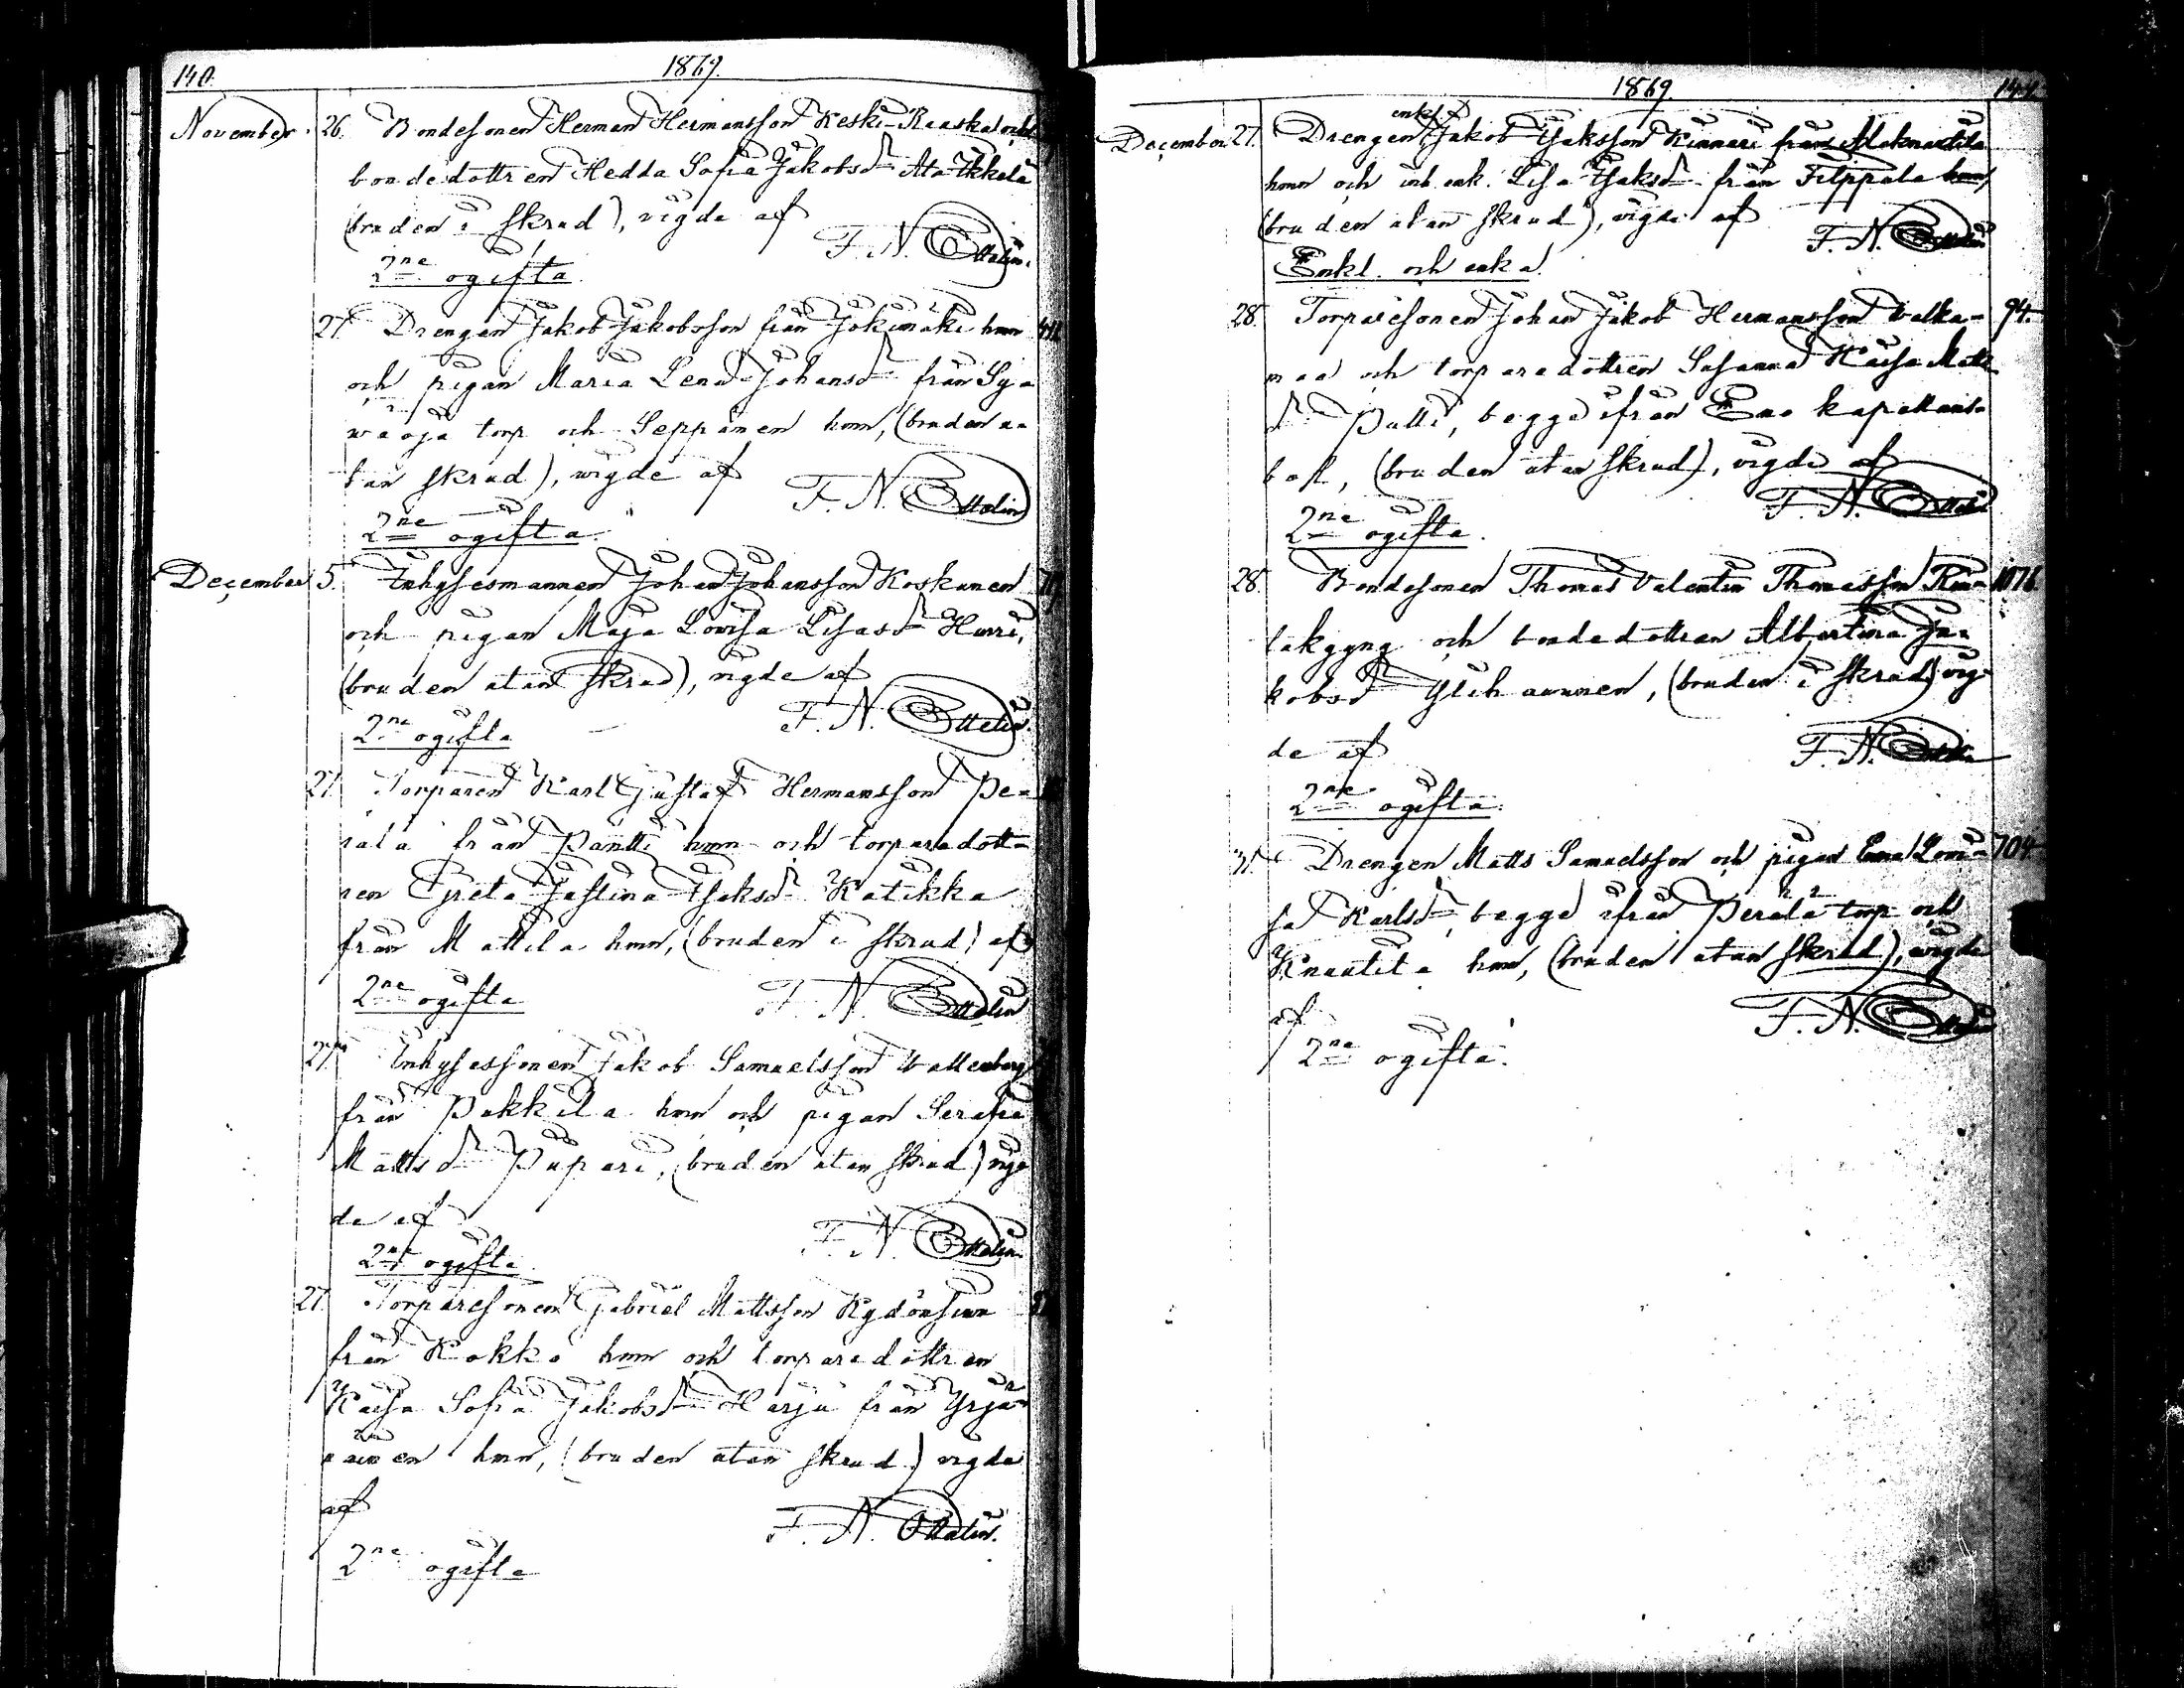 140.
1869.
November. 26. Bondesonen Herman Hermansson Keski-Raaska och
bondedottren Hedda Sofia Jakobsd. Ala-Ikkelä
(bruden i skrud), vigde af
F. N. Ottelin.
2ne ogifta
27. Drengen Jakob Jakobsson från Jokimäki hmn
och pigan Maria Lena Johansd. från Sy-
waoja torp och Seppänen hmn, (bruden u-
tan skrud), vigde af
F. N. Ottelin
2ne ogifta.
December 5. Inhysesmannen Johan Johansson Koskinen
och pigan Maja Lovisa Lisasd. Harri,
(bruden utan skrud), vigde af
F. N. Ottelin.
2ne ogifta
27. Torparen Karl Gustaf Hermansson Pe-
rälä från Pantti hmn och torparedott-
ren Greta Justina Isaksd. Katikka
från Mattila hmn, (bruden i skrud) af
F. N. Ottelin
2ne ogifta
27. Inhysessonen Jakob Samuelsson Wallenberg
från Pakkila hmn och pigan Serafia
Mattsd. Pupari, (bruden utan skrud) vig-
de af
F. N. Ottelin.
2ne ogifta
27. Torparesonen Gabriel Mattsson
från Kokko hmn och torparedottren
Kaisa Sofia Jakobsd. Harju från Yrjä-
nainen hmn, (bruden utan skrud) vigde
af
F. N. Ottelin.
2ne ogifta
1869.
141.
December 27. Drengen enkl. Jakob Isaksson Kinnari från Alaknuutila
hmn och inh. enk. Lisa Isaksd. från Filppula hmn,
(bruden utan skrud), vigde af
F. N. Ottelin
Enkl. och enka.
28. Torparesonen Johan Jakob Hermansson Walka- 94.
maa och torparedottren Susanna Kaisa Matts
d. Putti, begge ifrån Eno kapellans-
bol, (bruden utan skrud), vigde af
F. N. Ottelin
2ne ogifta.
28. Bondesonen Thomas Valentin Thomasson Rin- 1076.
takgyng och bondedottren Albertina Ja-
kobsd. Ylihannunen, (bruden i skrud) vig-
de af
F. N. Ottelin
2ne ogifta.
31. Drengen Matts Samuelsson och pigan Ema Lovi- 704
sa Karlsd., begge ifrån Perälä torp och
Knuutila hmn, (bruden utan skrud), vigde
af
F. N. Ottelin
2ne ogifta.